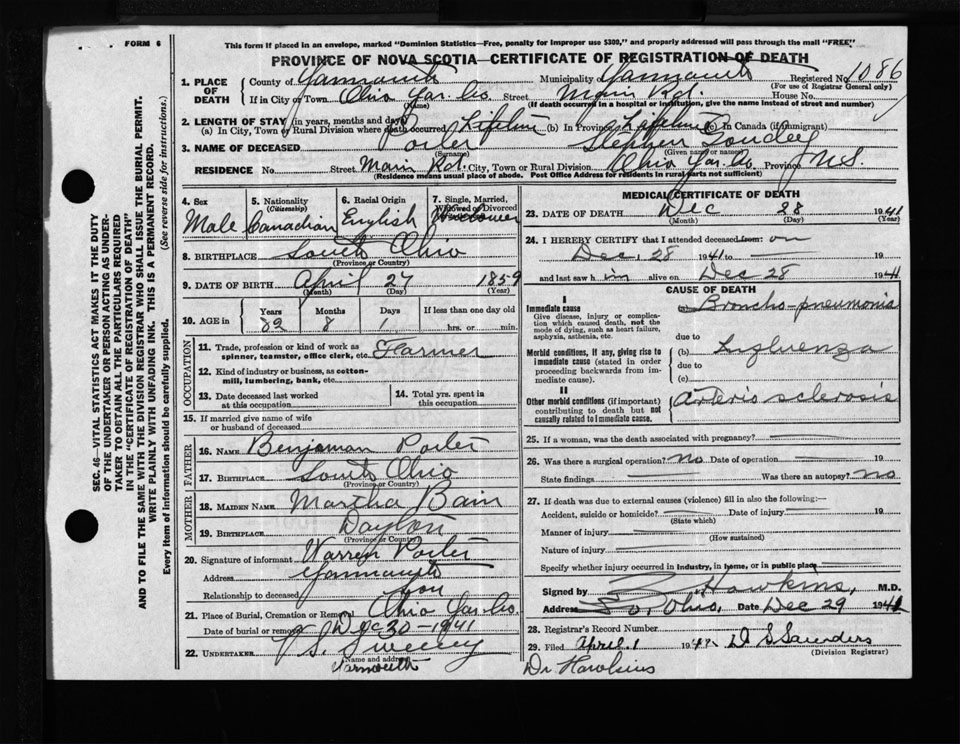 FORM 6
This form if placed in an envelope, marked "Dominion Statistics—Free, penalty for improper use $300," and properly addressed will pass through the mail "FREE"
PROVINCE OF NOVA SCOTIA—CERTIFICATE OF REGISTRATION OF DEATH
1. PLACE OF DEATH
County of Yarmouth Municipality of Yarmouth Registered No. 1086
(For use of Registrar General only)
If in City or Town Ohio Yar. Co. Street Main Rd. House No.
(Name) (If death occurred in a hospital or institution, give the name instead of street and number)
2. LENGTH OF STAY (in years, months and days)
(a) In City, Town or Rural Division where death occurred Lifetime (b) In Province Lifetime (c) In Canada (if immigrant)
3. NAME OF DECEASED Porter Stephen Goudey
(Surname) (Given name or names)
RESIDENCE No. Street Main Rd. City, Town or Rural Division Ohio Yar. Co. Province N.S.
(Residence means usual place of abode. Post Office Address for residents in rural parts not sufficient)
4. Sex Male
5. Nationality (Citizenship) Canadian
6. Racial Origin English
7. Single, Married, Widowed or Divorced Widower
8. BIRTHPLACE South Ohio
(Province or Country)
9. DATE OF BIRTH April 27 1859
(Month) (Day) (Year)
10. AGE in Years 82 Months 8 Days 1 If less than one day old
hrs. or min.
OCCUPATION
11. Trade, profession or kind of work as spinner, teamster, office clerk, etc. Farmer
12. Kind of industry or business, as cotton-mill, lumbering, bank, etc.
13. Date deceased last worked at this occupation
14. Total yrs. spent in this occupation
15. If married give name of wife or husband of deceased
FATHER
16. NAME Benjaman Porter
17. BIRTHPLACE South Ohio
(Province or Country)
MOTHER
18. MAIDEN NAME Martha Bain
19. BIRTHPLACE Dayton
(Province or Country)
20. Signature of informant Warren Porter
Address Yarmouth
Relationship to deceased son
21. Place of Burial, Cremation or Removal Ohio Yar. Co.
Date of burial or removal Dec 30 - 1941
22. UNDERTAKER Sweeny
(Name and address)
Yarmouth
MEDICAL CERTIFICATE OF DEATH
23. DATE OF DEATH Dec 28 1941
(Month) (Day) (Year)
24. I HEREBY CERTIFY that I attended deceased from: on
Dec, 28 1941 to 19
and last saw him alive on Dec 28 1941
CAUSE OF DEATH
I
Immediate cause
Give disease, injury or complication which caused death, not the mode of dying, such as heart failure, asphyxia, asthenia, etc.
(a) Broncho-pneumonia
due to
Morbid conditions, if any, giving rise to immediate cause (stated in order proceeding backwards from immediate cause).
(b) Influenza
due to
(c)
II
Other morbid conditions (if important) contributing to death but not causally related to immediate cause.
Arterio sclerosis
25. If a woman, was the death associated with pregnancy?
26. Was there a surgical operation? No Date of operation 19
State findings Was there an autopsy? No
27. If death was due to external causes (violence) fill in also the following:—
Accident, suicide or homicide? Date of injury 19
(State which)
Manner of injury
(How sustained)
Nature of injury
Specify whether injury occurred in Industry, in home, or in public place
Signed by Hawkins, M.D.
Address So. Ohio, Date Dec 29 1941
28. Registrar's Record Number
29. Filed April 1 194 Saunders
(Division Registrar)
Dr Hawkins
SEC. 46—VITAL STATISTICS ACT MAKES IT THE DUTY
OF THE UNDERTAKER OR PERSON ACTING AS UNDER-
TAKER TO OBTAIN ALL THE PARTICULARS REQUIRED
IN THE "CERTIFICATE OF REGISTRATION OF DEATH"
AND TO FILE THE SAME WITH THE DIVISION REGISTRAR WHO SHALL ISSUE THE BURIAL PERMIT.
WRITE PLAINLY WITH UNFADING INK. THIS IS A PERMANENT RECORD.
Every item of information should be carefully supplied. (See reverse side for instructions.)